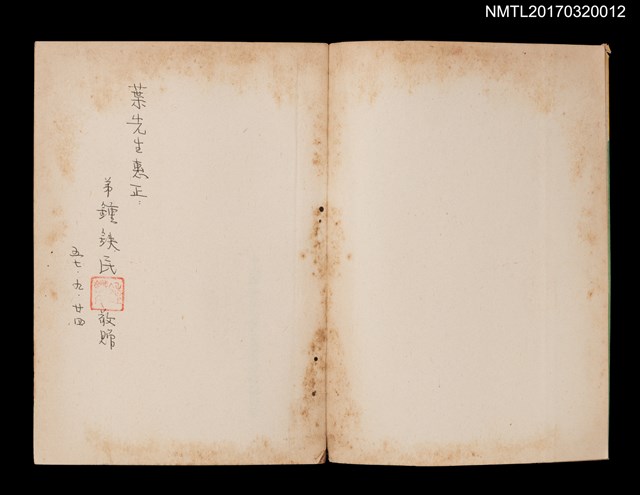 NMTL20170320012
葉先生惠正:
弟鍾鉄民 敬贈
五七.九.廿四